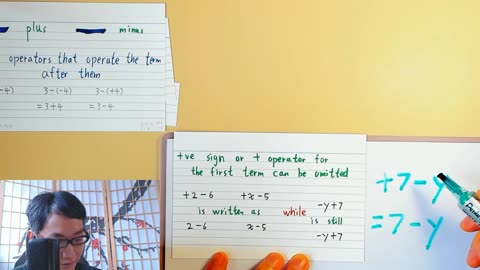 plus minus
operators that operate the term
after them
-4) 3-(-4) 3-(+4)
=3+4 =3-4
+ve sign or + operator for
the first term can be omitted
+2-6 +x-5 -y+7
is written as while is still
2-6 x-5 -y+7
+7-y
=7-y